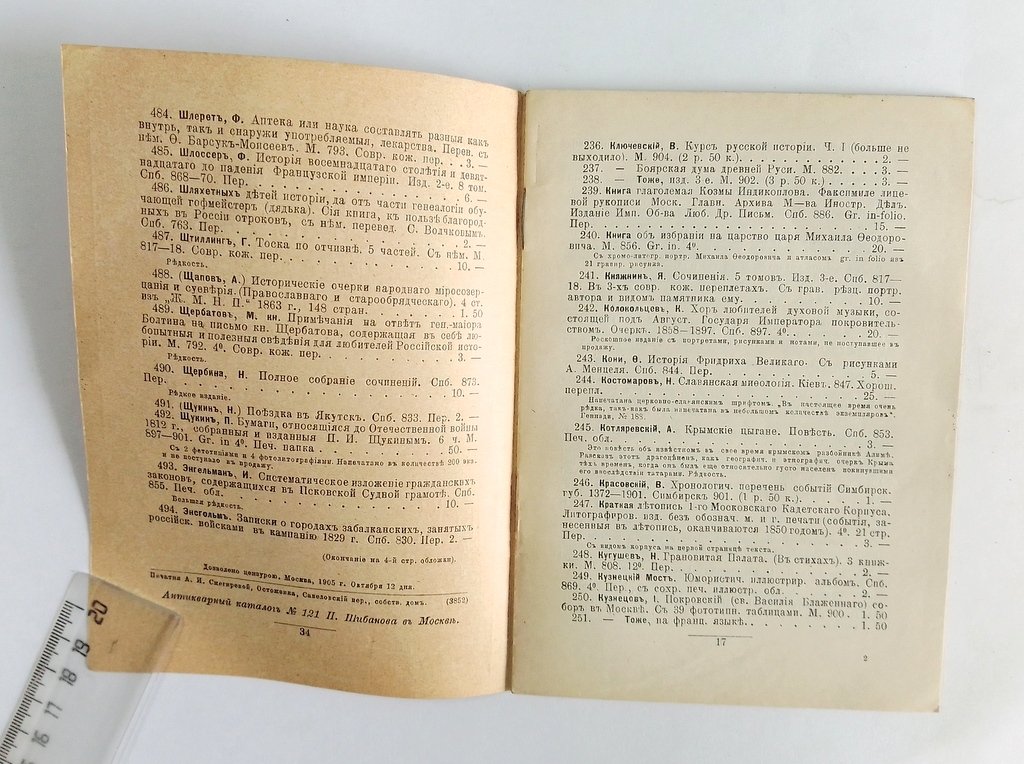 484. Шлеретъ, Ф. Аптека или наука составлять разныя какъ
внутрь, такъ и снаружи употребляемыя, лекарства. Перев. съ
нѣм. Ѳ. Барсукъ-Моисеевъ. М. 793. Совр. кож. пер. . . 3. —
485. Шлоссеръ, Ф. Исторія восемнадцатаго столѣтія и девят-
надцатаго до паденія Французской имперіи. Изд. 2-е. 8 том.
Спб. 868—70. Пер. . . . . . . . . . . . . . . . 6. —
486. Шляхетныхъ дѣтей исторіи, да отъ части генеалогіи обу-
чающей гофмейстеръ (дядька). Сія книга, къ пользѣ благород-
ныхъ въ Россіи отроковъ, съ нѣм. перевед. С. Волчковымъ.
Спб. 763. Пер. . . . . . . . . . . . . . . . . 2. —
487. Штиллингъ, Г. Тоска по отчизнѣ. 5 частей. Съ нѣм. М.
817—18. Совр. кож. пер. . . . . . . . . . . . . 10. —
Рѣдкость.
488. (Щаповъ, А.) Историческіе очерки народнаго міросозер-
цанія и суевѣрія. (Православнаго и старообрядческаго). 4 ст.
изъ „Ж. М. Н. П.“ 1863 г., 148 стран. . . . . . . 1. 50
489. Щербатовъ, М. кн. Примѣчанія на отвѣтъ ген.-маіора
Болтина на письмо кн. Щербатова, содержащая въ себѣ лю-
бопытныя и полезныя свѣдѣнія для любителей Россійской исто-
ріи. М. 792. 4⁰. Совр. кож. пер. . . . . . . . . . 3. —
Рѣдкость.
490. Щербина, Н. Полное собраніе сочиненій. Спб. 873.
Пер. . . . . . . . . . . . . . . . . . . . 10. —
Рѣдкое изданіе.
491. (Щукинъ, Н.) Поѣздка въ Якутскъ. Спб. 833. Пер. 2. —
492. Щукинъ, П. Бумаги, относящіяся до Отечественной войны
1812 г., собранныя и изданныя П. И. Щукинымъ. 6 ч. М.
897—901. Gr. in 4⁰. Печ. папка . . . . . . . . . 50. —
Съ 2 фототипіями и 4 фотолитографіями. Напечатано въ количествѣ 200 экз.
и не поступало въ продажу.
493. Энгельманъ, И. Систематическое изложеніе гражданскихъ
законовъ, содержащихся въ Псковской Судной грамотѣ. Спб.
855. Печ. обл. . . . . . . . . . . . . . . . . 10. —
Большая рѣдкость.
494. Энегольмъ. Записки о городахъ забалканскихъ, занятыхъ
россійск. войсками въ кампанію 1829 г. Спб. 830. Пер. 2. —
(Окончаніе на 4-й стр. обложки).
Дозволено цензурою, Москва, 1905 г. Октября 12 дня.
Печатня А. И. Снегиревой, Остоженка, Савеловскій пер., собств. домъ. (3852)
Антикварный каталогъ № 121 П. Шибанова въ Москвѣ.
34
236. Ключевскій, В. Курсъ русской исторіи. Ч. I (больше не
выходило). М. 904. (2 р. 50 к.). . . . . . . . . . 2. —
237. — Боярская дума древней Руси. М. 882. . . . 3. —
238. — Тоже, изд. 3-е. М. 902. (3 р. 50 к.). . . . . 3. —
239. Книга глаголемая Козмы Индикоплова. Факсимиле лице-
вой рукописи Моск. Главн. Архива М—ва Иностр. Дѣлъ.
Изданіе Имп. Об-ва Люб. Др. Письм. Спб. 886. Gr. in-folio.
Пер. . . . . . . . . . . . . . . . . . . . 15. —
240. Книга объ избраніи на царство царя Михаила Ѳеодоро-
вича. М. 856. Gr. in. 4⁰. . . . . . . . . . . . . 20. —
Съ хромо-литогр. портр. Михаила Ѳеодоровича и атласомъ gr. in folio изъ
21 гравир. рисунка.
241. Княжнинъ, Я. Сочиненія. 5 томовъ. Изд. 3-е. Спб. 817—
18. Въ 3-хъ совр. кож. переплетахъ. Съ грав. рѣзц. портр.
автора и видомъ памятника ему. . . . . . . . . . 10. —
242. Колокольцевъ, К. Хоръ любителей духовной музыки, со-
стоящей подъ Август. Государя Императора покровитель-
ствомъ. Очеркъ. 1858—1897. Спб. 897. 4⁰. . . . . . 20. —
Роскошное изданіе съ портретами, рисунками и нотами, не поступавшее въ
продажу.
243. Кони, Ѳ. Исторія Фридриха Великаго. Съ рисунками
А. Менцеля. Спб. 844. Пер. . . . . . . . . . . . 5. —
244. Костомаровъ, Н. Славянская миѳологія. Кіевъ. 847. Хорош.
перепл. . . . . . . . . . . . . . . . . . . 25. —
Напечатана церковно-славянскимъ шрифтомъ. „Въ настоящее время очень
рѣдка, такъ-какъ была напечатана въ небольшомъ количествѣ экземпляровъ“.
Геннади, № 188.
245. Котляревскій, А. Крымскіе цыгане. Повѣсть. Спб. 853.
Печ. обл. . . . . . . . . . . . . . . . . . . 3. —
Это повѣсть объ извѣстномъ въ свое время крымскомъ разбойникѣ Алимѣ.
Разсказъ этотъ драгоцѣненъ, какъ географич. и этнографич. очеркъ Крыма
тѣхъ временъ, когда онъ былъ еще относительно густо населенъ покинувшими
его впослѣдствіи татарами. Рѣдкость.
246. Красовскій, В. Хронологич. перечень событій Симбирск.
губ. 1372—1901. Симбирскъ 901. (1 р. 50 к.). . . . . 1. —
247. Краткая лѣтопись 1-го Московскаго Кадетскаго Корпуса,
Литографиров. изд. безъ обознач. м. и г. печати (событія, за-
несенныя въ лѣтопись, оканчиваются 1850 годомъ). 4⁰. 21 стр.
Пер. . . . . . . . . . . . . . . . . . . . 3. —
Съ видомъ корпуса на первой страницѣ текста.
248. Кугушевъ, Н. Грановитая Палата. (Въ стихахъ). 3 книж-
ки. М. 808. 12⁰. Пер. . . . . . . . . . . . . . 2. —
249. Кузнецкій Мостъ. Юмористич. иллюстрир. альбомъ. Спб.
869. 4⁰. Пер., съ сохр. печ. иллюстр. обл. . . . . . 2. —
250. Кузнецовъ, І. Покровскій (св. Василія Блаженнаго) со-
боръ въ Москвѣ. Съ 39 фототипн. таблицами. М. 900. . 1. 50
251. — Тоже, на франц. языкѣ. . . . . . . . . . 1. 50
17
2
20
19
18
17
16